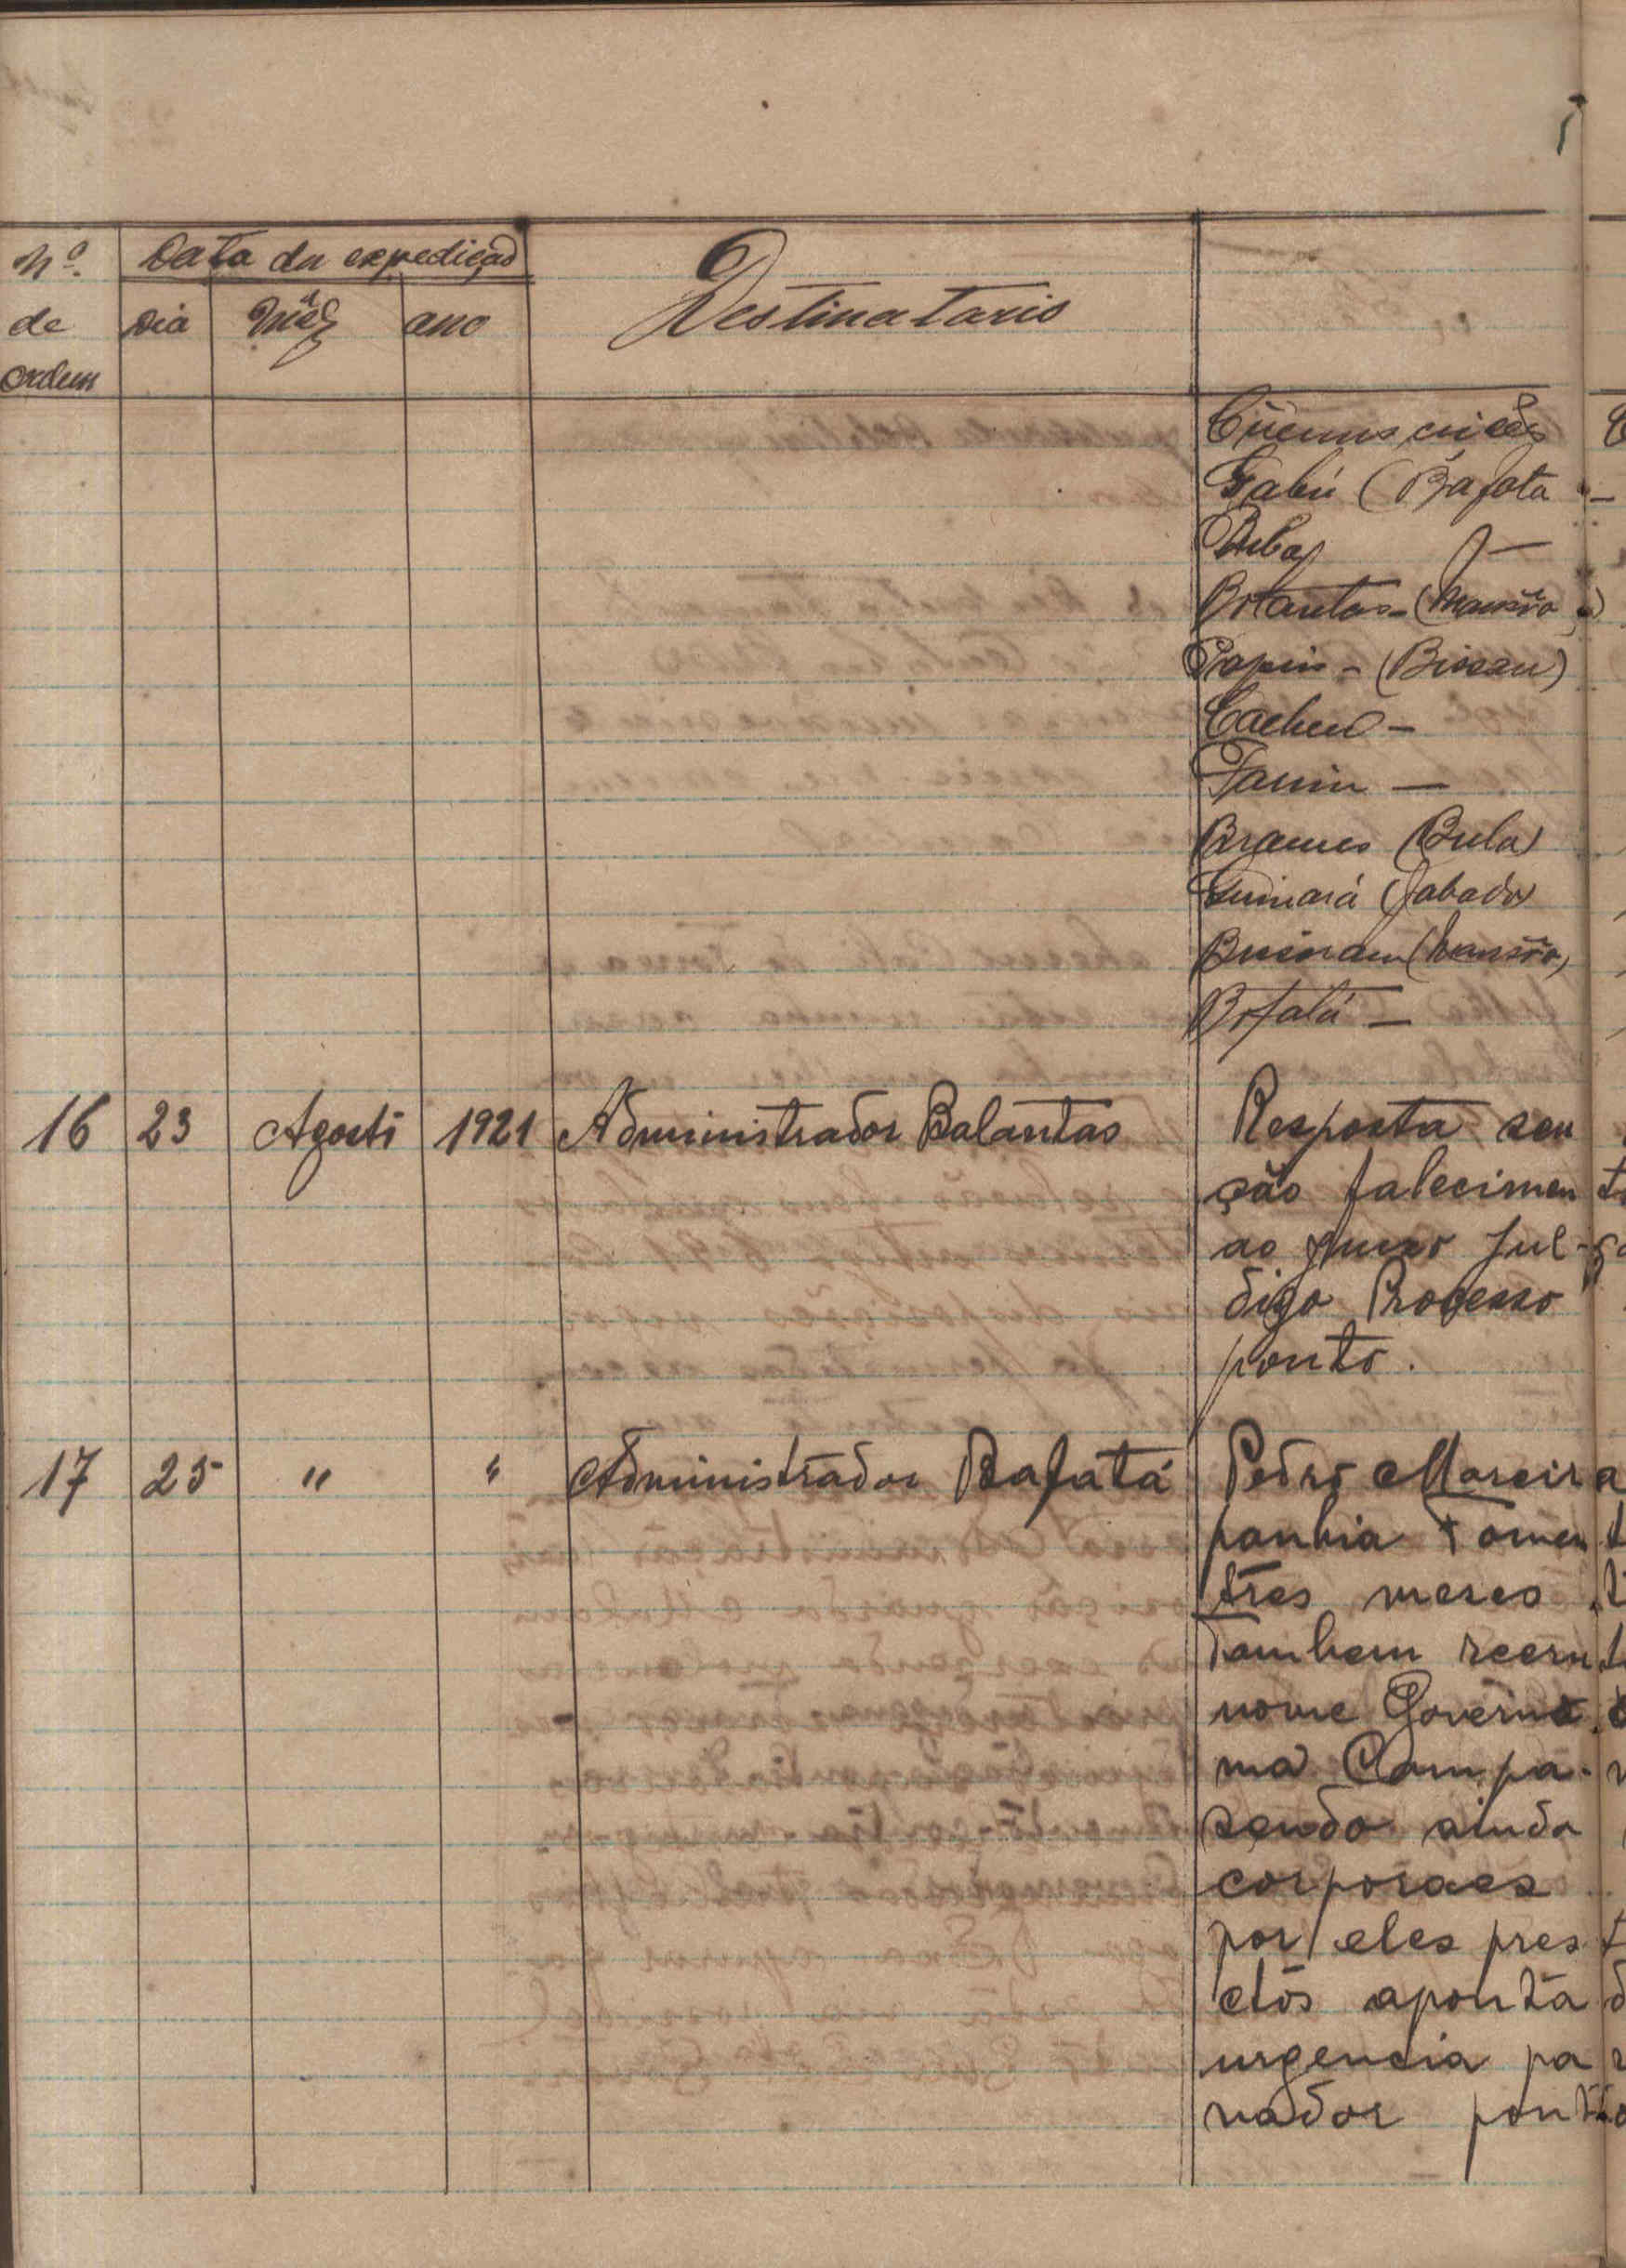 Nº. Data da expedição
de Dia Mês ano Destinatario
ordem
Circunscricões
Gabú (Bafata
Balantas - (Mansôa)
Papeis - (Bissau)
Cacheu -
Farim -
Brames (Bula)
Quinará (Fabado
(Mansôa)
Bafatá -
16 23 Agosto 1921 Administrador Balantas Resposta seu
ção falecimen
ao Juizo Jul-
digo Processo
ponto.
17 25 " " Administrador Bafatá Pedro Moreira
panhia Fomen
tres meses
Tambem recru
nome Governo
ma Campa-
sendo ainda
corporaes
por eles pres
ctos aponta
urgencia pa
nador ponto